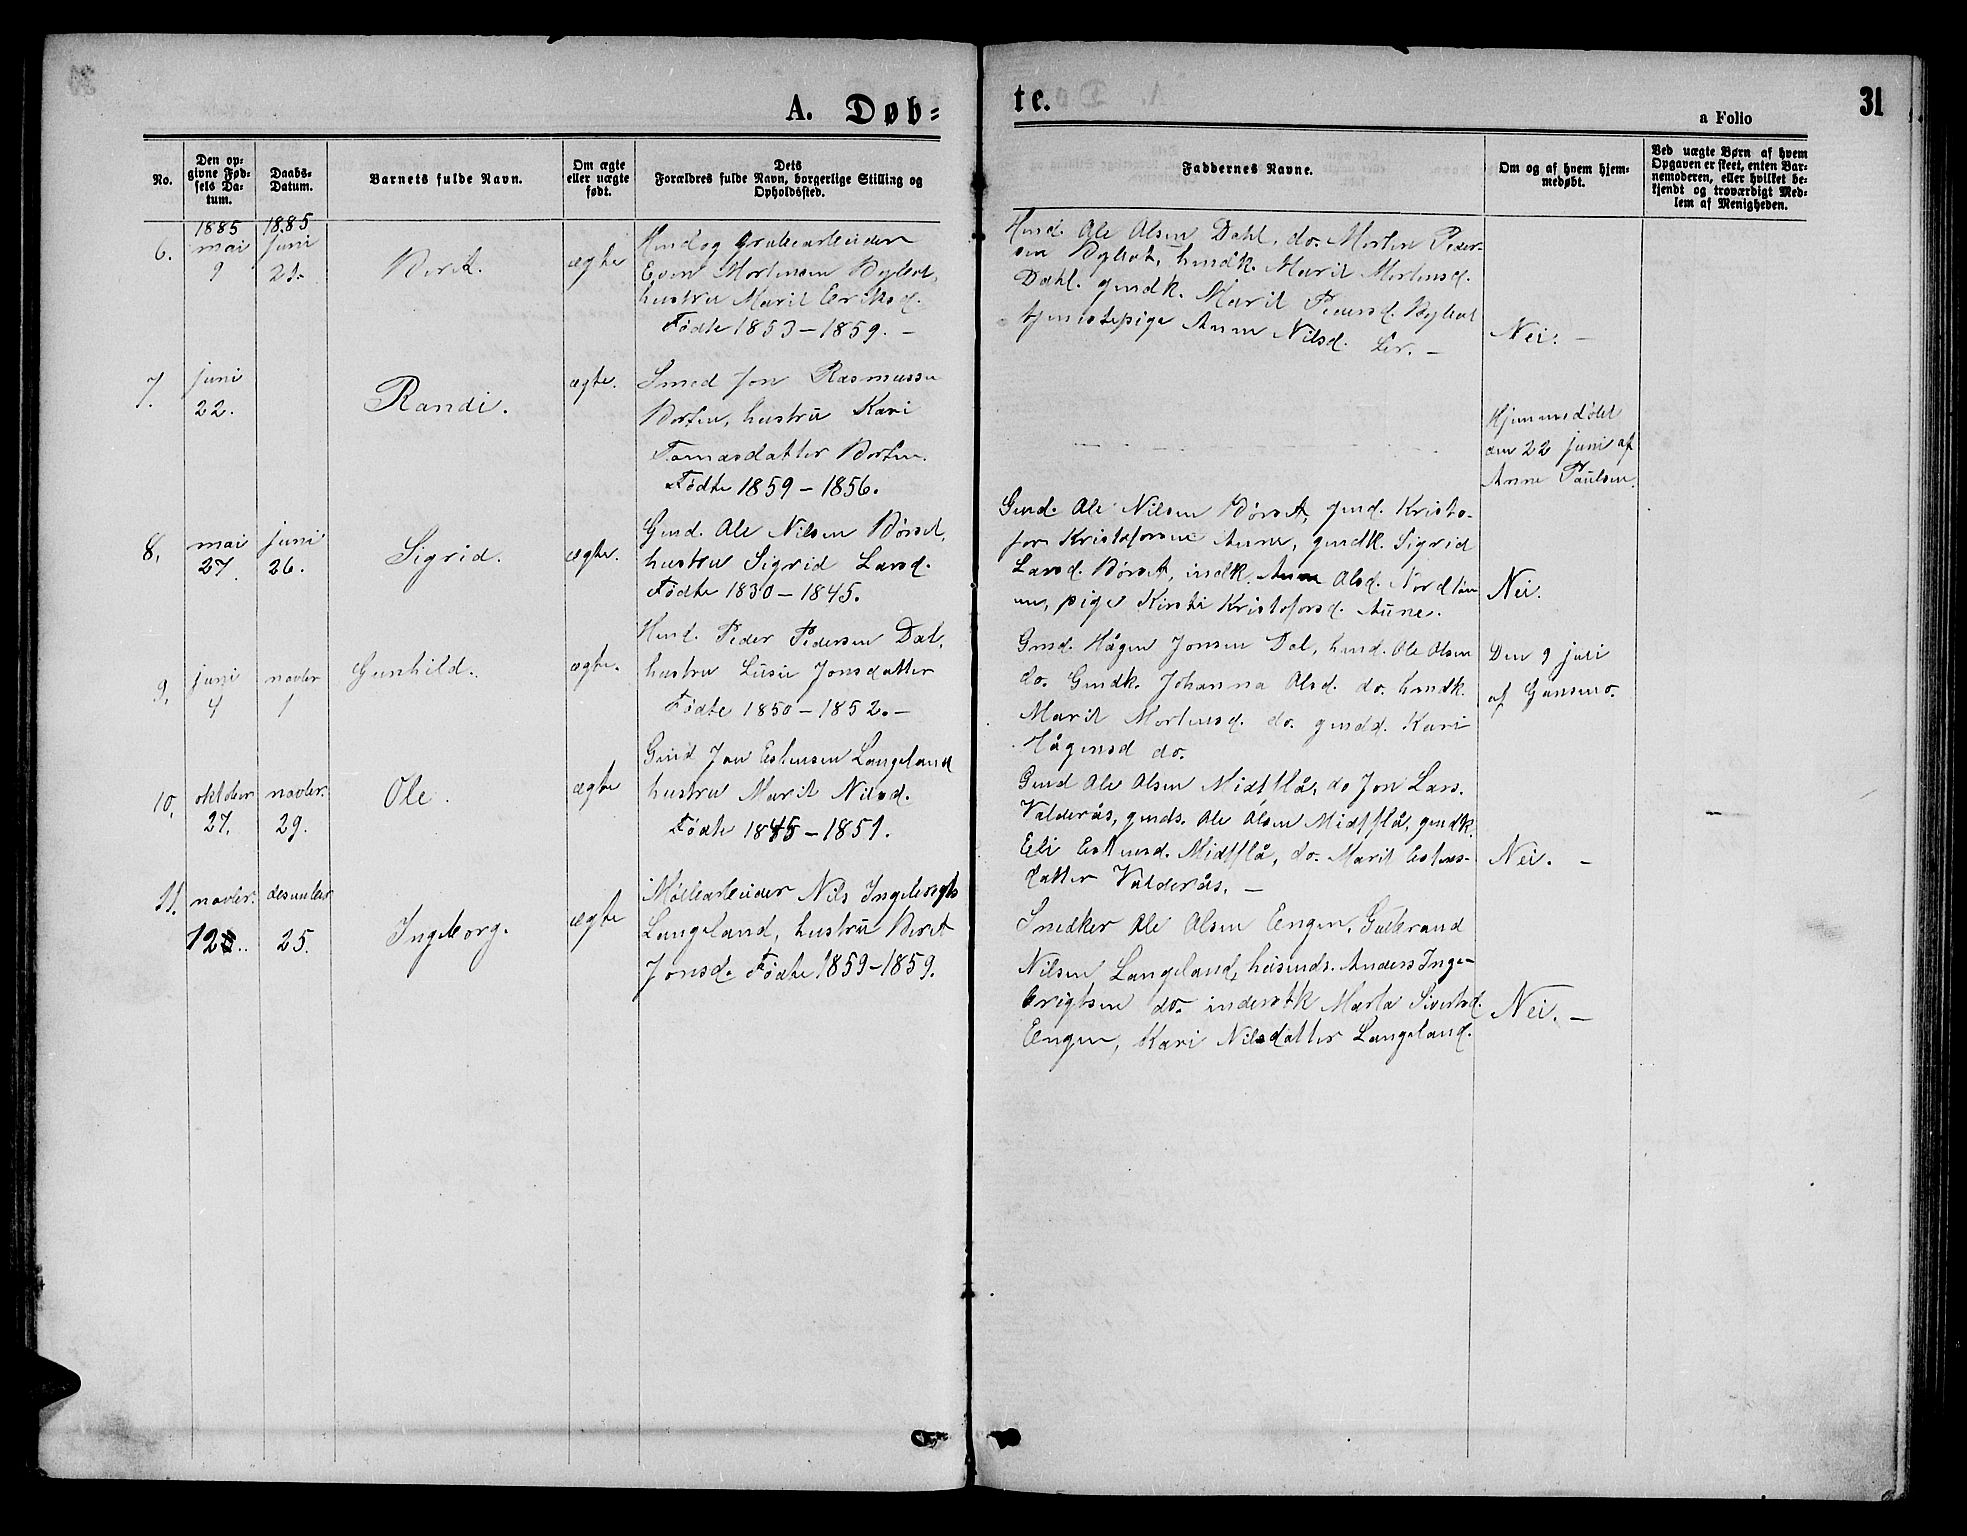 A. Døb=
te.
a Folio
31
No.
Den op-
givne Fød-
sels Da-
tum.
Daabs-
Datum.
Barnets fulde Navn.
Om ægte
eller uægte
født.
Dets
Forældres fulde Navn, borgerlige Stilling og
Opholdssted.
Faddernes Navne.
Om og af hvem hjem-
medøbt.
Ved uægte Børn af hvem
Opgaven er skeet, enten Bar-
nemoderen, eller hvilket be-
kjendt og troværdigt Med-
lem af Menigheden.
1885 1885
6. mai juni
9 21.
Berit.
ægte
Husd og Grubearbeider
Even Mortensen
hustru Marit Eriksd.
Fødte 1853 – 1859. –
Husd. Ole Olsen Dahl, do. Morten Peder-
sen husdk. Marit Mortensd.
Dahl. gmdk. Marit Pedersd.
tjenestepige Anne Nilsd. Ler. –
Nei. –
7. juni
22.
Randi.
ægte.
Smed Jon Rasmussen
Borten, hustru Kari
Tomasdatter Borten.
Fødte 1859 – 1856.
Hjemmedøbt
den 22 juni af
Anne Paulsen.
8. mai juni
27. 26.
Sigrid.
ægte.
Gmd. Ole Nilsen Børset,
hustru Sigrid Larsd.
Fødte 1830 – 1845.
Gmd. Ole Nilsen Børset, gmd. Kristo-
for Kristoforsen Aune, gmdk. Sigrid
Larsd. Børset, indk. Anne Olsd.
pige Kirsti Kristoforsd. Aune.
Nei.
9. juni novbr
4 1
Gunhild.
ægte.
Husd. Peder Pedersen Dal,
hustru Lusie Jonsdatter
Fødte 1850 – 1852. –
Gmd. Hågen Jonsen Dal, husd. Ole Olsen
do. Gmdk. Johanna Olsd. do. husdk.
Marit Mortensd. do. gmdd. Kari
Hågensd do.
Den 9 juli
af
10. oktober novbr.
27. 29.
Ole.
ægte
Gmd Jon Estensen Langeland
hustru Marit Nilsd.
Fødte 1845 – 1851.
Gmd Ole Olsen Midtflå, do Jon Lars.
Valderås, gmds. Ole Olsen Midtflå, gmdk.
Eli Estensd. Midtflå, do. Marit Estens-
datter Valderås. –
Nei. –
11. novbr. desember
12. 25.
Ingeborg.
ægte
Møllearbeider Nils Ingebrigts
Langeland, hustru Berit
Jonsd. Fødte 1859–1859.
Snedker Ole Olsen Engen, Gulbrand
Nilsen Langeland, husmds. Anders Inge-
brigtsen do. inderstk Marta Sivertsd.
Engen, Kari Nilsdatter Langeland.
Nei. –